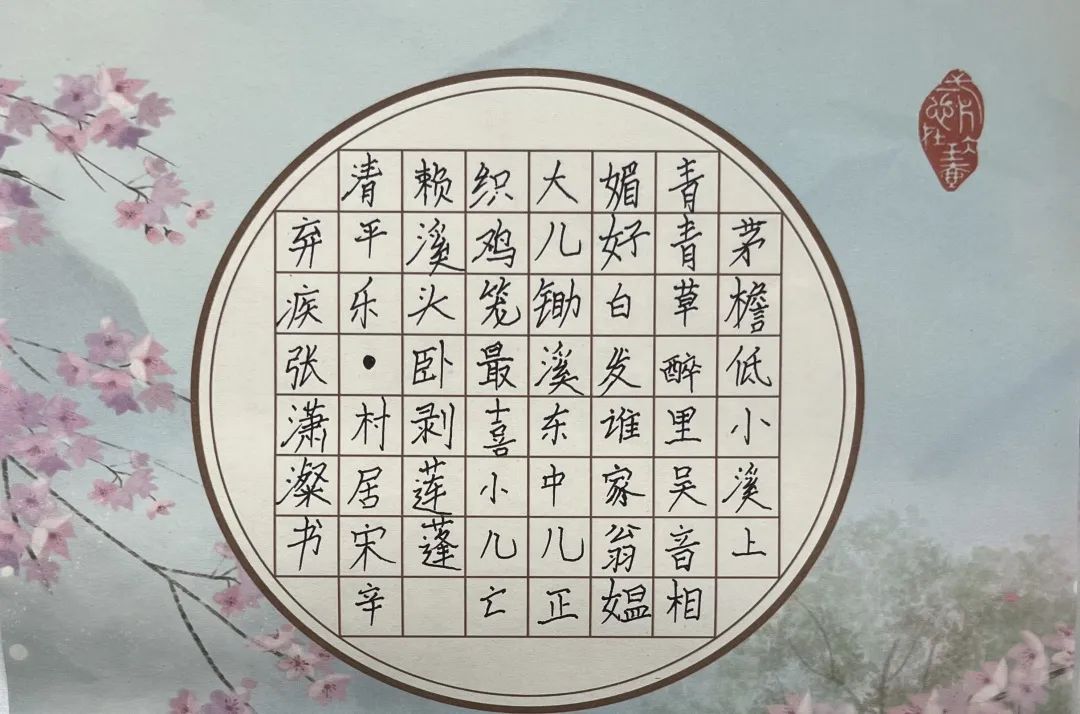 茅檐低小溪上
青青草醉里吴音相
媚好白发谁家翁媪
大儿锄溪东中儿正
织鸡笼最喜小儿亡
赖溪头卧剥莲蓬
清平乐·村居宋辛
弃疾张潇澯书